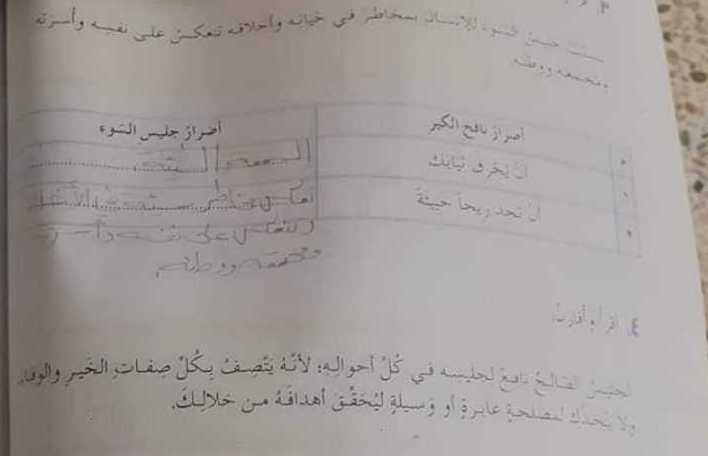 يتسبب جليس السوء للإنسان بمخاطر في حياته وأخلاقه تنعكس على نفسه وأسرته
ومجتمعه ووطنه
أضرار نافخ الكير
أضرار جليس السوء
أن يحرق ثيابك
السمعة السيئة
أن تجد ريحاً خبيثةً
وتنعكس على نفسه وأسرته
مجتمعه ووطنه
٤. اقرأ وأقارن:
الجليسُ الصّالحُ نافعٌ لجليسه في كُلِّ أحوالِهِ؛ لأنّهُ يَتّصِفُ بِكُلِّ صِفاتِ الخَيرِ والوفاء
ولا يتخذك لمصلحةٍ عابرةٍ أو وَسيلةٍ ليُحَقِّقَ أهدافَهُ من خلالِكَ.